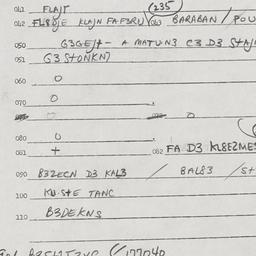 041 FLAJT (235
042 FL8ÖJE KLAJN FAFBRU/043 BARABAN / POU
050 G3GEJt - A MATUN3 C3 D3 StAJ
051 G3 StONKN7
060 O
070 O
O
080 O
081 + 082 FA D3 KL8E2MES
090 B32ECN D3 KAL3 / BAL83 / St
100 KU.StE TANC
110 B3DEKNS
177040